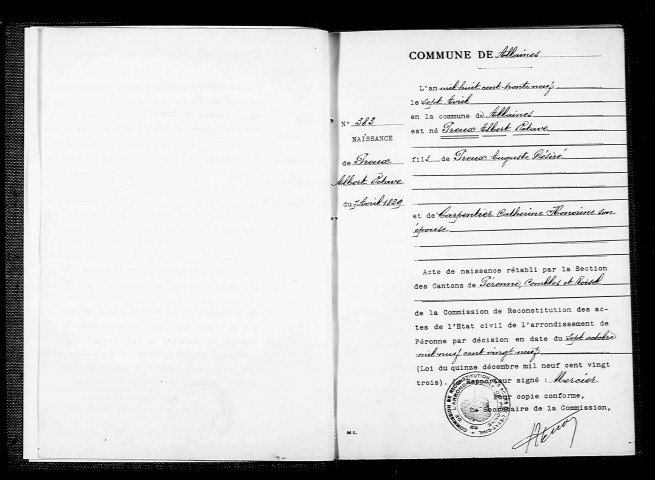 COMMUNE DE Allaines
L'an mil huit cent trente neuf
le sept Avril
en la commune de Allaines
est né Preux Albert Octave
N° 383
NAISSANCE
de Preux
Albert Octave
du 7 Avril 1839
fils de Preux Auguste Désiré
et de Carpentier Catherine Honorine son
épouse
Acte de naissance rétabli par la Section
des Cantons de Péronne, Combles et Roisel
de la Commission de Reconstitution des ac-
tes de l'Etat civil de l'arrondissement de
Péronne par décision en date du sept octobre
mil neuf cent vingt neuf
(Loi du quinze décembre mil neuf cent vingt
trois). Le Rapporteur signé : Mercier
Pour copie conforme,
Le Secrétaire de la Commission,